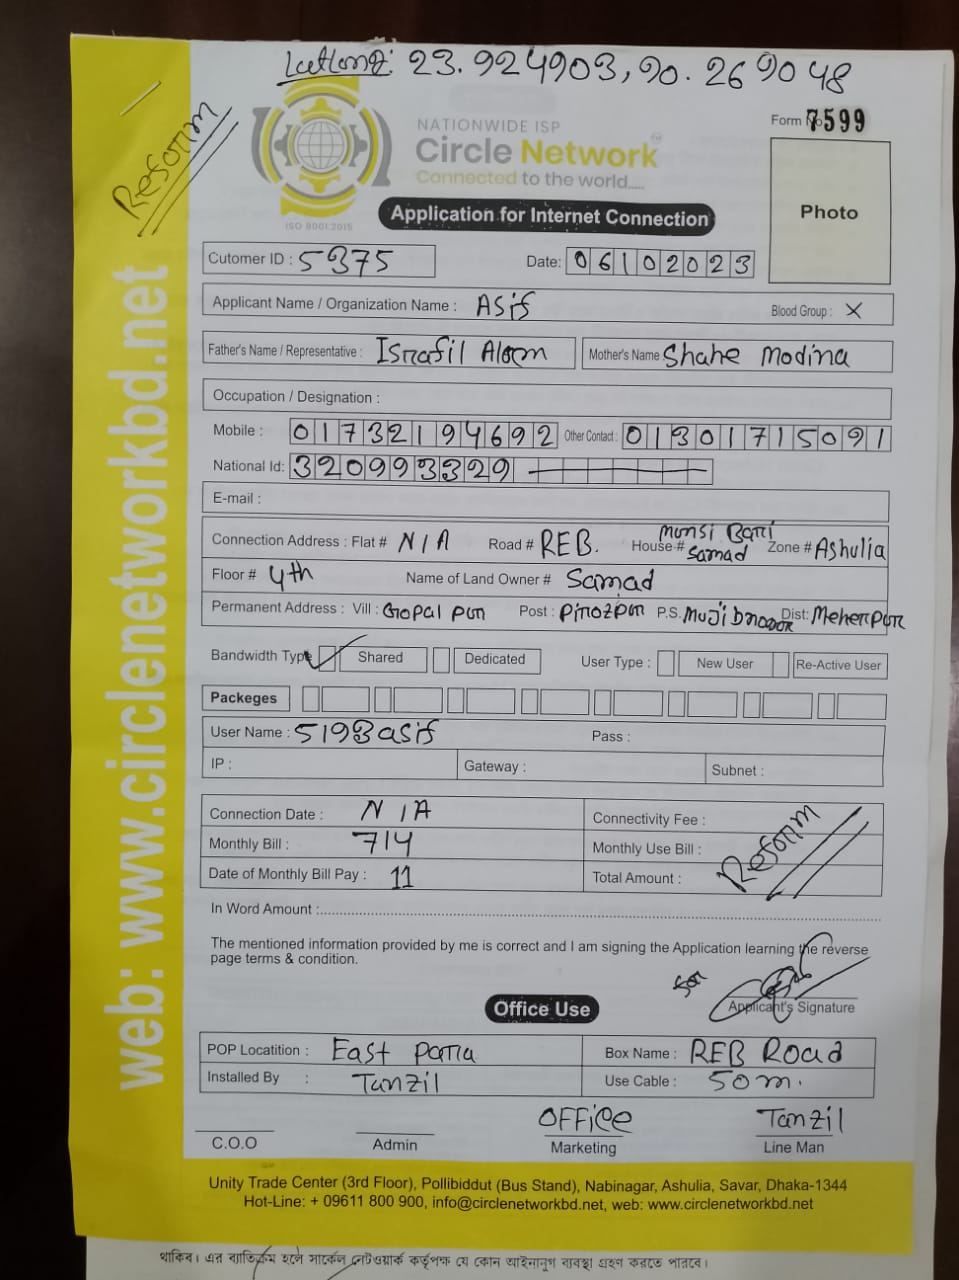 Latlong: 23.924903, 90.269048
Reform
Form No 7599
NATIONWIDE ISP
Circle Network™
Connected to the world.....
ISO 9001:2015
Photo
Application for Internet Connection
Cutomer ID : 5375
Date: 06102023
Applicant Name / Organization Name : Asif
Blood Group : X
Father's Name / Representative : Israfil Alom
Mother's Name Shahe Modina
Occupation / Designation :
Mobile : 01732194692 Other Contact : 01301715091
National Id: 3209933329
E-mail :
Connection Address : Flat # N/A Road # REB. House # Munsi Bari Samad Zone # Ashulia
Floor # 4th Name of Land Owner # Samad
Permanent Address : Vill : Gopal pur Post : Pirozpur P.S. Mujibnagar Dist: Meherpur
Bandwidth Type Shared Dedicated User Type : New User Re-Active User
Packeges
User Name : 5193asif Pass :
IP : Gateway : Subnet :
Connection Date : N/A Connectivity Fee :
Monthly Bill : 714 Monthly Use Bill :
Date of Monthly Bill Pay : 11 Total Amount :
Reform
In Word Amount :
The mentioned information provided by me is correct and I am signing the Application learning the reverse
page terms & condition.
Applicant's Signature
Office Use
POP Locatition : East para Box Name : REB Road
Installed By : Tanzil Use Cable : 50m.
OFFice Tanzil
C.O.O Admin Marketing Line Man
Unity Trade Center (3rd Floor), Pollibiddut (Bus Stand), Nabinagar, Ashulia, Savar, Dhaka-1344
Hot-Line: + 09611 800 900, info@circlenetworkbd.net, web: www.circlenetworkbd.net
থাকিব। এর ব্যতিক্রম হলে সার্কেল নেটওয়ার্ক কর্তৃপক্ষ যে কোন আইনানুগ ব্যবস্থা গ্রহণ করতে পারবে।
web: www.circlenetworkbd.net